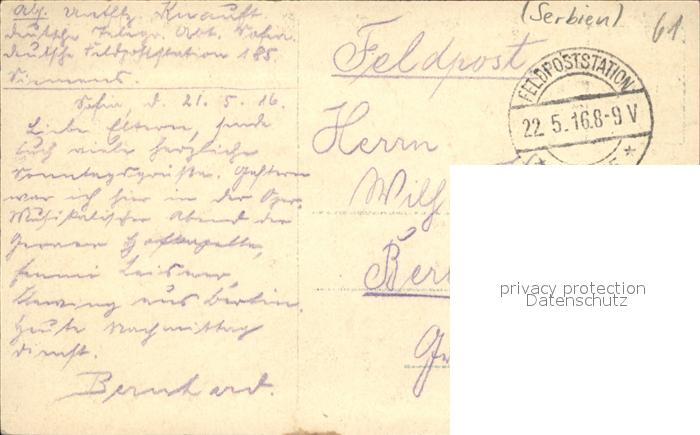 Abs. Knauft
Deutsche Telegr. Abt. Sofia.
Deutsche Feldpoststation 185.
Siemens.
Sofia, d. 21. 5. 16.
Liebe Eltern, sende
Euch viele herzliche
Sonntagsgrüße. Gestern
war ich hier in der Oper,
Musikalischer Abend der
Geraer Hofkapelle,
Leisner,
aus Berlin.
Heute Nachmittag
dienst.
Bernhard.
(Serbien)
61.
Feldpost
FELDPOSTSTATION
22. 5. 16. 8-9 V
Herrn
Wilh
Ber
privacy protection
Datenschutz